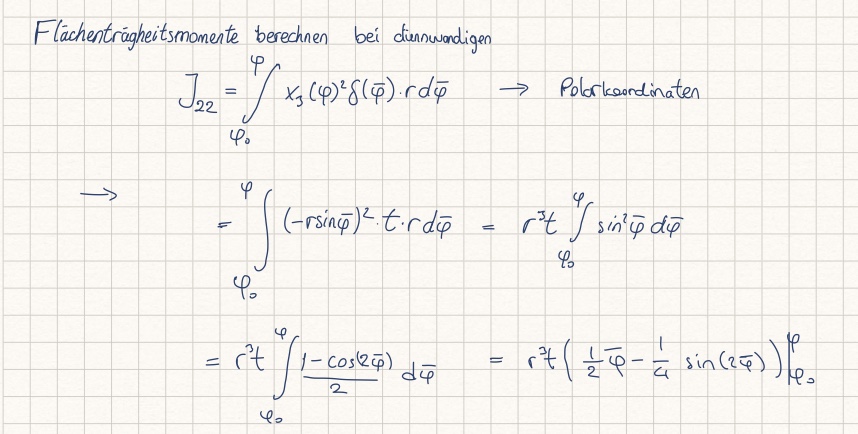 Flächenträgheitsmomente berechnen bei dünnwandigen
J₂₂ = ∫_{φ₀}^{φ} x₃(φ)² δ(φ̄) · r dφ̄ → Polarkoordinaten
→ = ∫_{φ₀}^{φ} (-r sin φ̄)² · t · r dφ̄ = r³t ∫_{φ₀}^{φ} sin² φ̄ dφ̄
= r³t ∫_{φ₀}^{φ} (1 - cos(2φ̄))/2 dφ̄ = r³t ( 1/2 φ̄ - 1/4 sin(2φ̄) ) |_{φ₀}^{φ}